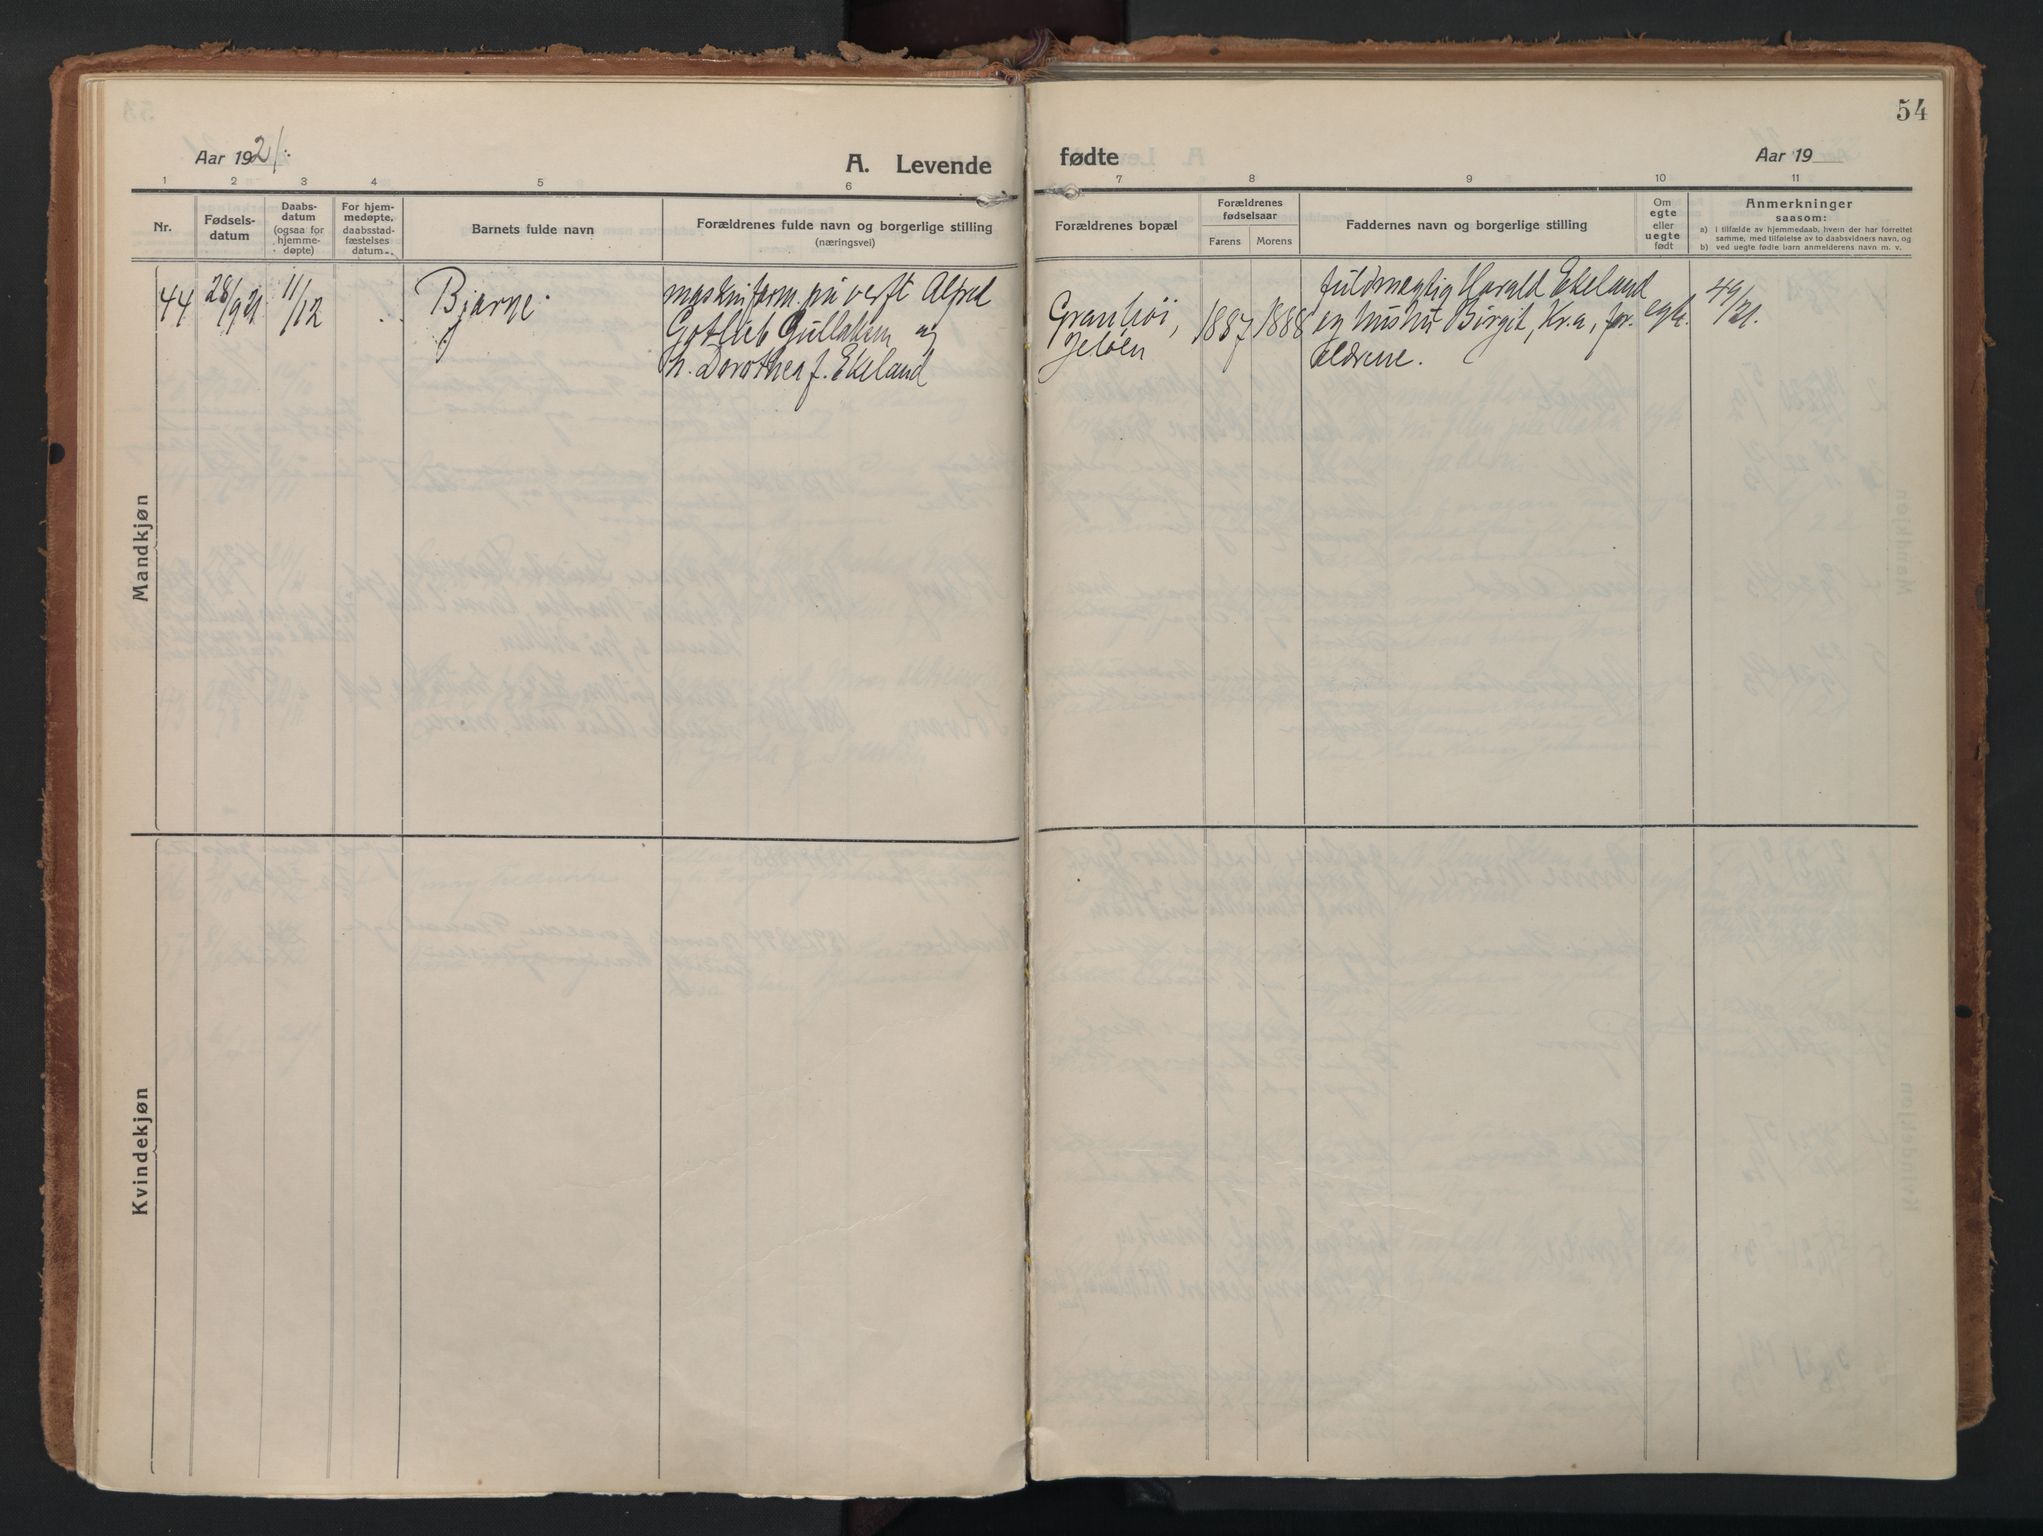 54
Aar 1921.
A. Levende
fødte
Aar 19
1 2 3 4 5 6 7 8 9 10 11
Nr.
Fødsels-
datum
Daabs-
datum
(ogsaa for
hjemme-
døpte)
For hjem-
medøpte,
daabsstad-
fæstelses
datum
Barnets fulde navn
Forældrenes fulde navn og borgerlige stilling
(næringsvei)
Forældrenes bopæl
Forældrenes
fødselsaar
Farens Morens
Faddernes navn og borgerlige stilling
Om
egte
eller
uegte
født
Anmerkninger
saasom:
a) I tilfælde av hjemmedaab, hvem der har forrettet
samme, med tilføielse av to daabsvidners navn, og
b) ved uegte fødte barn anmelderens navn m. v.
Mandkjøn
44
28/9 21
11/12
Bjarne
maskinform. på verft Alfred
Gotlieb Gullaksen og
h. Dorothea f. Ekeland
Granhöi,
Jeløen
1887
1888
fuldmægtig Harald Ekeland
og hustru Birgit, Kr.a, for-
ældrene.
egte.
49/21.
Kvindekjøn